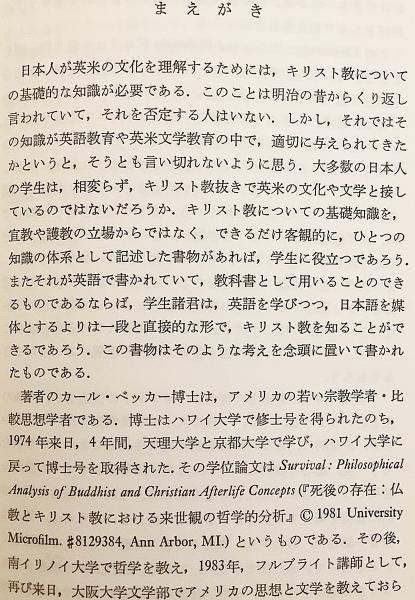 まえがき
日本人が英米の文化を理解するためには，キリスト教について
の基礎的な知識が必要である．このことは明治の昔からくり返し
言われていて，それを否定する人はいない．しかし，それではそ
の知識が英語教育や英米文学教育の中で，適切に与えられてきた
かというと，そうとも言い切れないように思う．大多数の日本人
の学生は，相変らず，キリスト教抜きで英米の文化や文学と接し
ているのではないだろうか．キリスト教についての基礎知識を，
宣教や護教の立場からではなく，できるだけ客観的に，ひとつの
知識の体系として記述した書物があれば，学生に役立つであろう．
またそれが英語で書かれていて，教科書として用いることのでき
るものであるならば，学生諸君は，英語を学びつつ，日本語を媒
体とするよりは一段と直接的な形で，キリスト教を知ることがで
きるであろう．この書物はそのような考えを念頭に置いて書かれ
たものである．
著者のカール・ベッカー博士は，アメリカの若い宗教学者・比
較思想学者である．博士はハワイ大学で修士号を得られたのち，
1974年来日，4年間，天理大学と京都大学で学び，ハワイ大学に
戻って博士号を取得された．その学位論文は Survival : Philosophical
Analysis of Buddhist and Christian Afterlife Concepts (『死後の存在：仏
教とキリスト教における来世観の哲学的分析』© 1981 University
Microfilm. ♯8129384, Ann Arbor, MI.) というものである．その後，
南イリノイ大学で哲学を教え，1983年，フルブライト講師として，
再び来日，大阪大学文学部でアメリカの思想と文学を教えておら